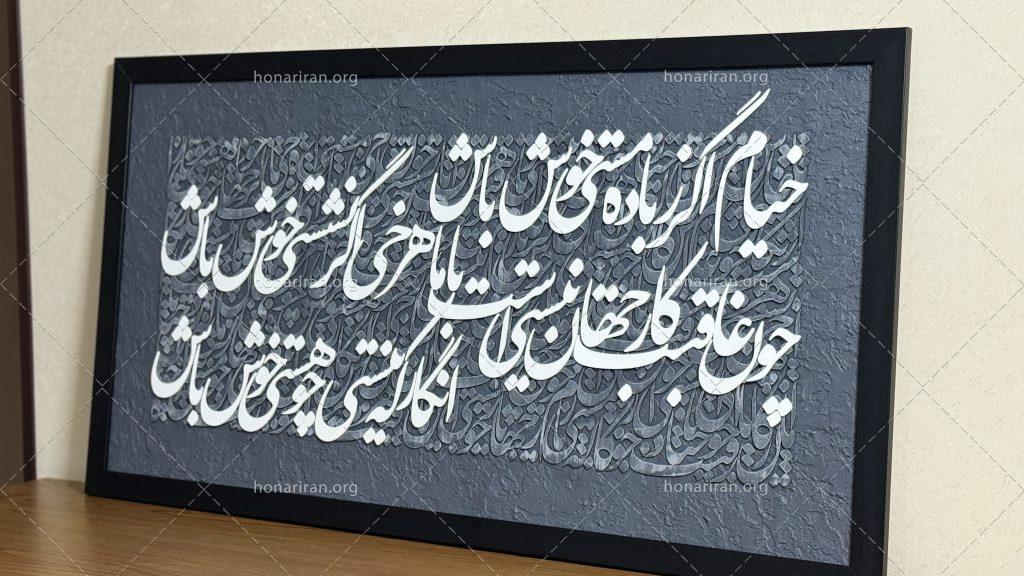 honariran.org honariran.org
خیام اگر ز باده مستی خوش باش
با ماهرخی اگر نشستی خوش باش
honariran.org honariran.org
چون عاقبت کار جهان نیستی است
انگار که نیستی چو هستی خوش باش
honariran.org honariran.org